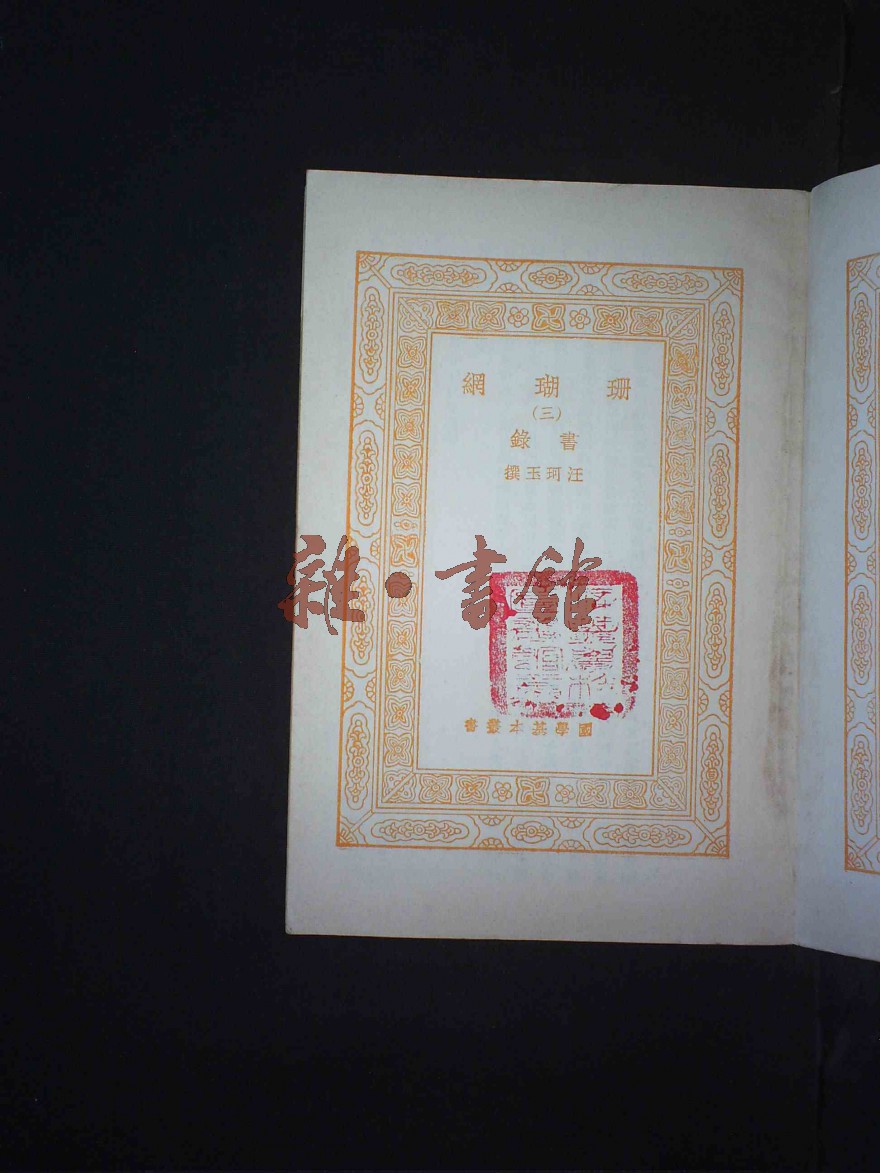 珊瑚網
(三)
書錄
汪珂玉撰
雜·書館
國學基本叢書